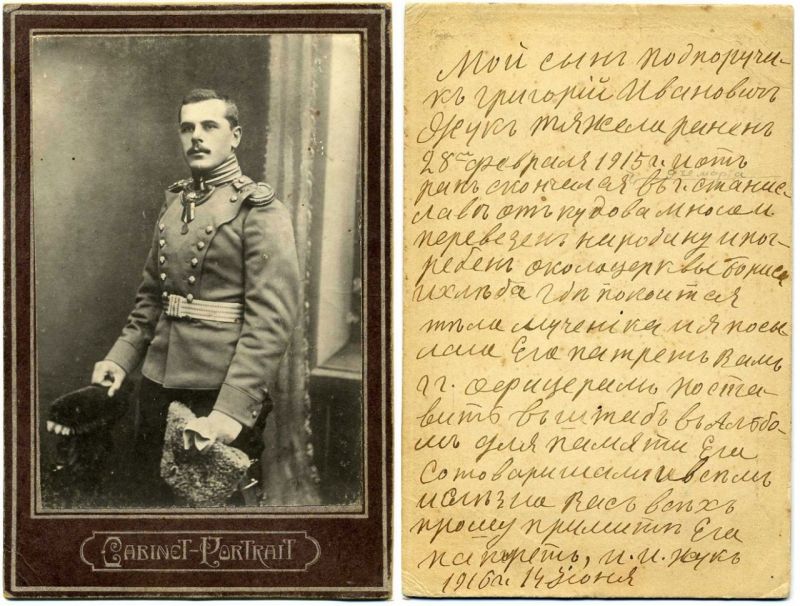 CABINET-PORTRAIT
Мой сынъ подпоручи-
къ григорій Ивановичъ
Жукъ тяжела раненъ
28го февраля 1915 г. и отъ
ранъ скончился въ г. станис-
лавъ отъ кудова мною
перевезенъ народину ипог-
ребенъ около церквы бориса
ихлѣба гдѣ покоится
тѣла мученіка ия посы-
лаю Его патретъ вамъ
гг. офицерамъ поста-
вить въ штабъ въ Альбо-
мъ для памяти Его
сотоварищами и всемъ
и слѣзна Васъ всѣхъ
прошу примитъ Его
патретъ, И. И. Жукъ
1916 г. 14 Іюня